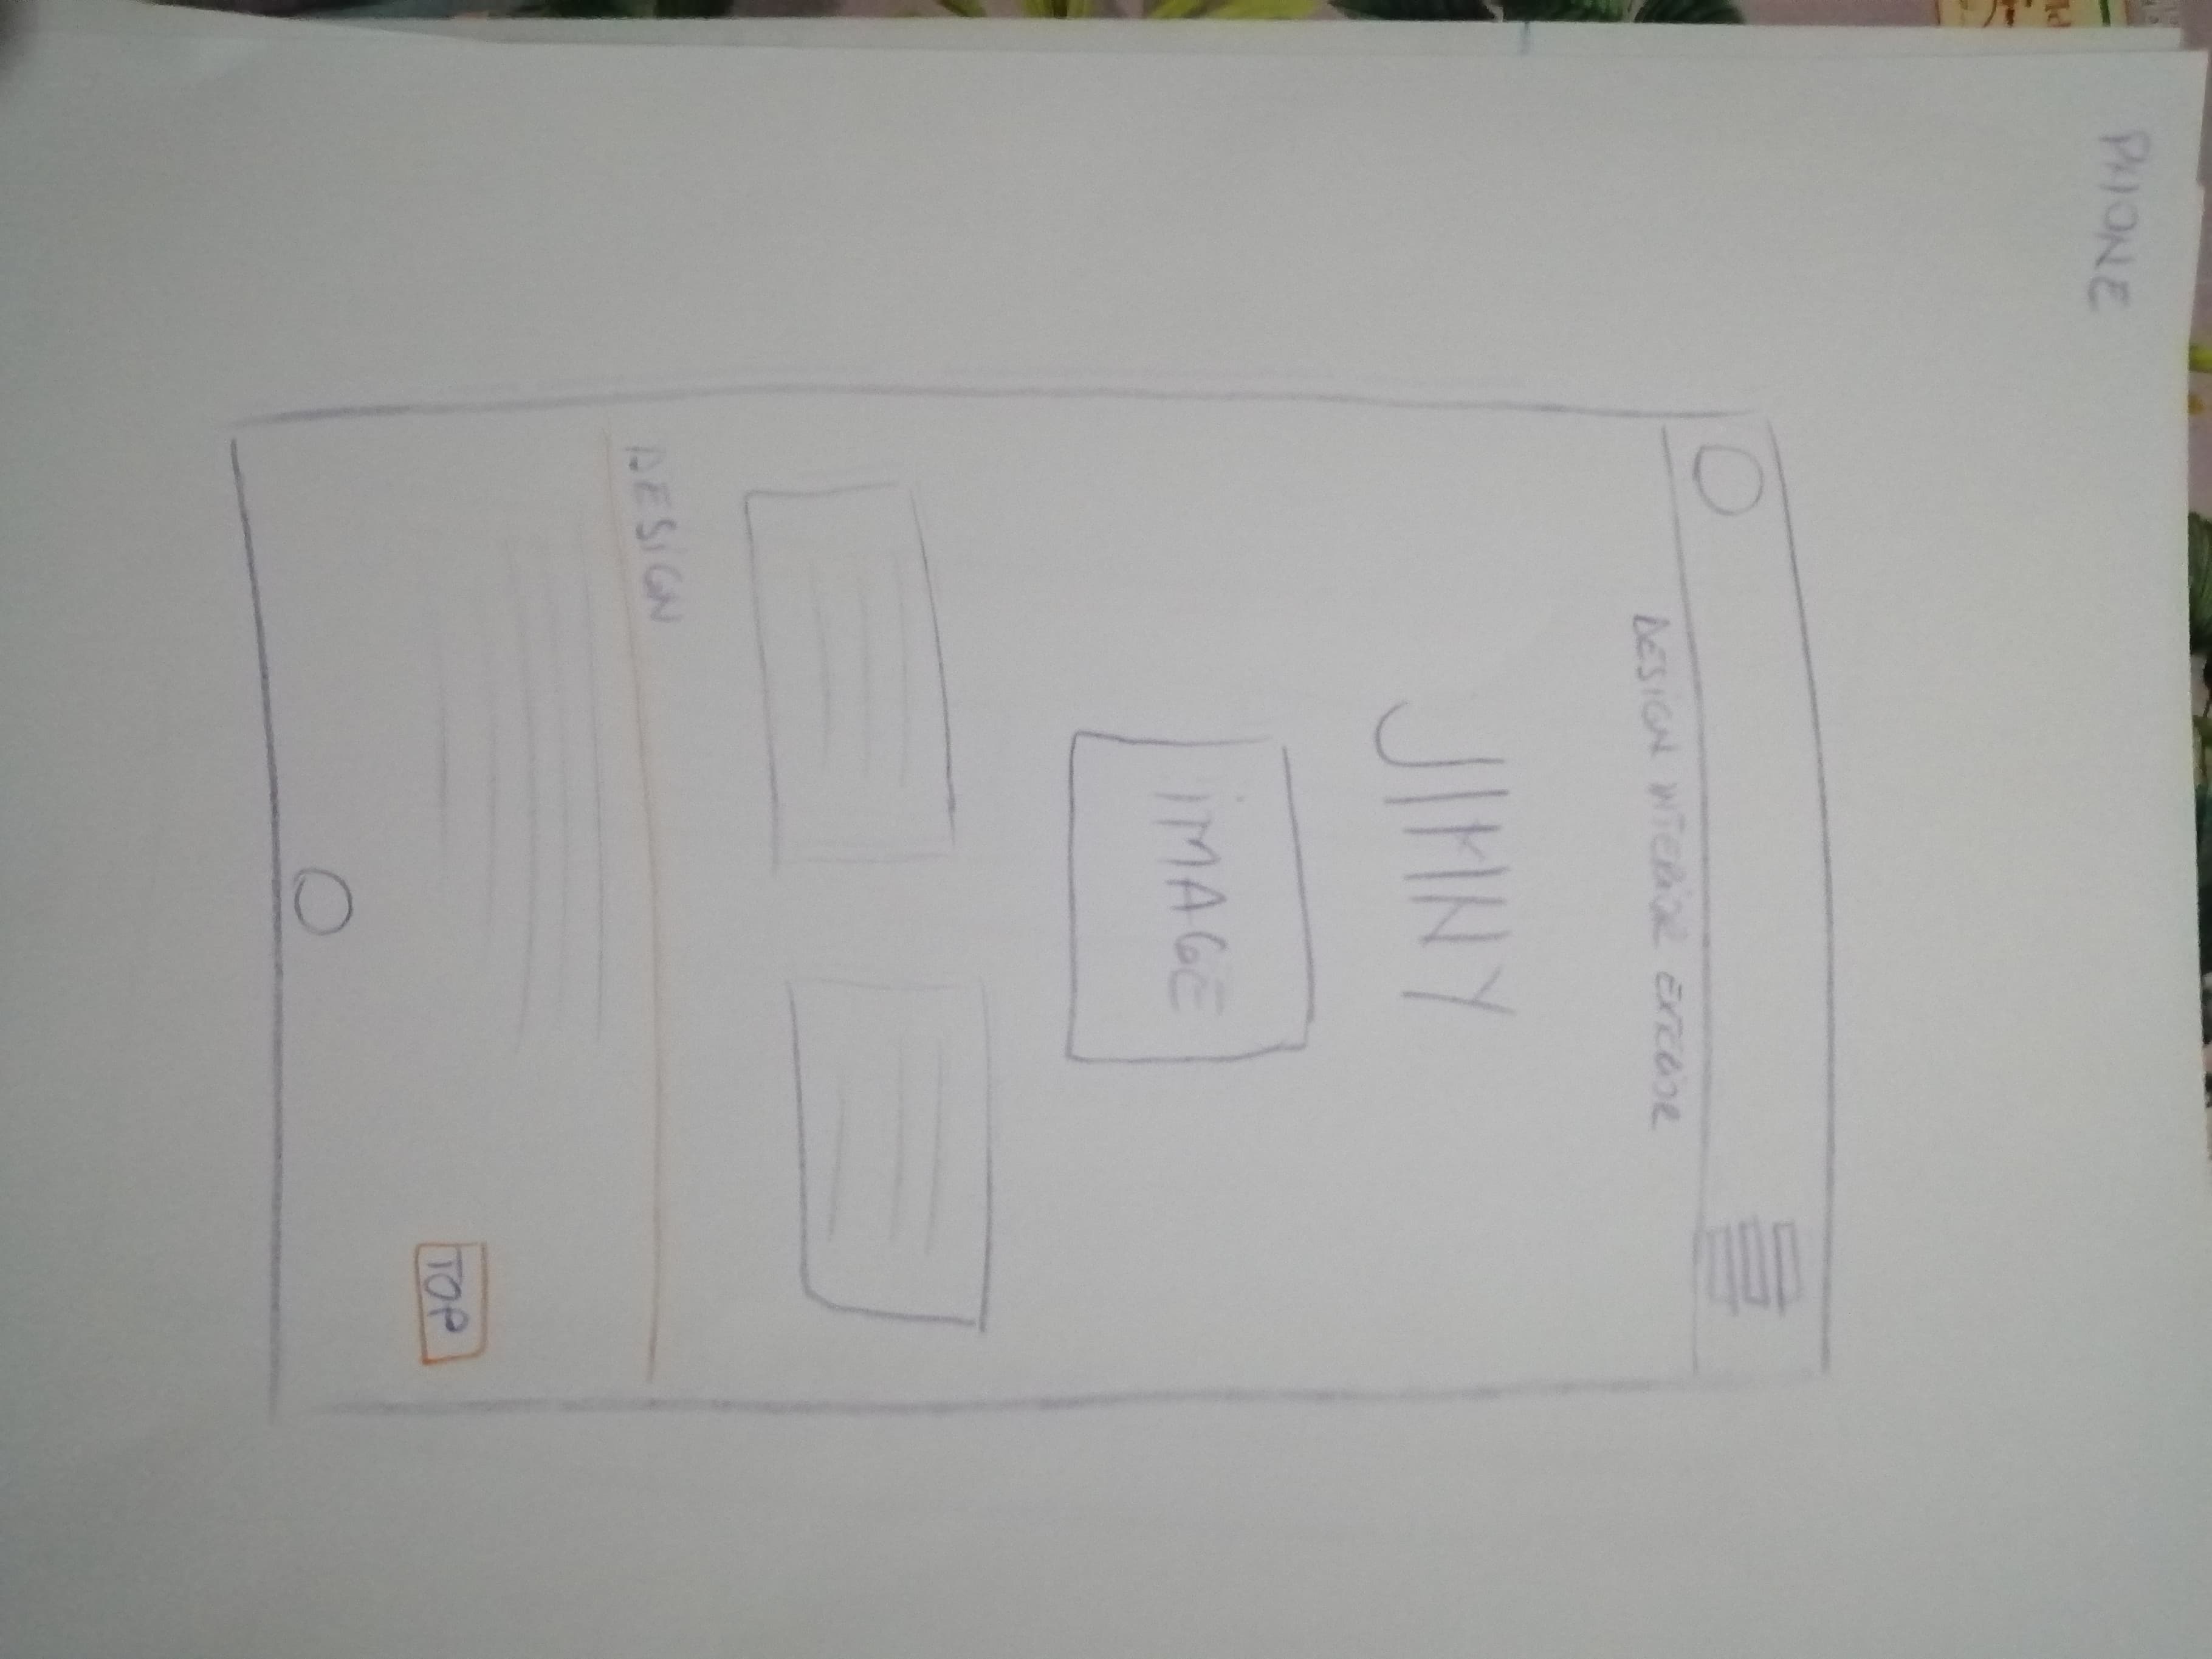 PHONE
DESIGN INTERIOR EXTERIOR
JIMNY
IMAGE
DESIGN
TOP